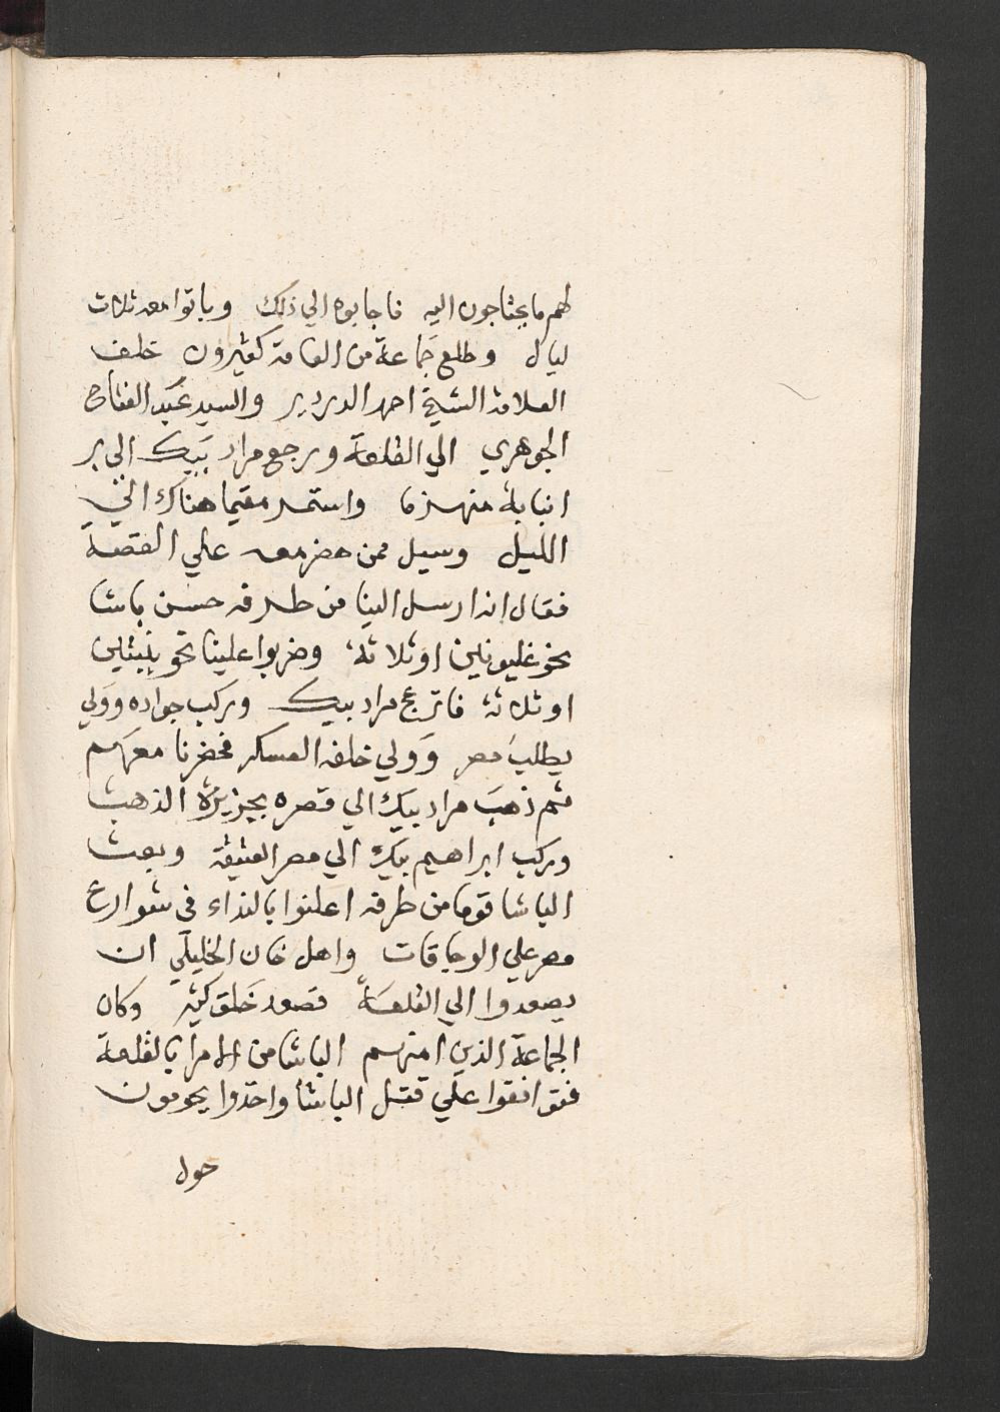 لهم ما يحتاجون اليه فاجابوه الي ذلك وباتوا معه ثلاث
ليال وطلع جماعة من العامة كثيرون خلف
العلامة الشيخ احمد الدردير والسيد عبد الفتاح
الجوهري الي القلعة ورجع مراد بيك الي بر
انبابة منهزما واستمر مقيما هناك الي
الليل وسيل ممن حضر معه علي القصة
فقال انه ارسل الينا من طرفه حسن باشا
نحو غليونين او ثلاثة وضربوا علينا نحو بنبتين
او ثلاثة فانزعج مراد بيك وركب جواده وولي
يطلب مصر وولي خلفه العسكر فحضرنا معهم
ثم ذهب مراد بيك الي قصره بجزيرة الذهب
وركب ابراهيم بيك الي مصر العتيقة وبعث
الباشا قوما من طرفه اعلنوا بالنداء في شوارع
مصر علي الوجاقات واهل خان الخليلي ان
يصعدوا الي القلعة فصعد خلق كثير وكان
الجماعة الذين امنهم الباشا من الامرا بالقلعة
فتوافقوا علي قتل الباشا واخذوا يحومون
حول